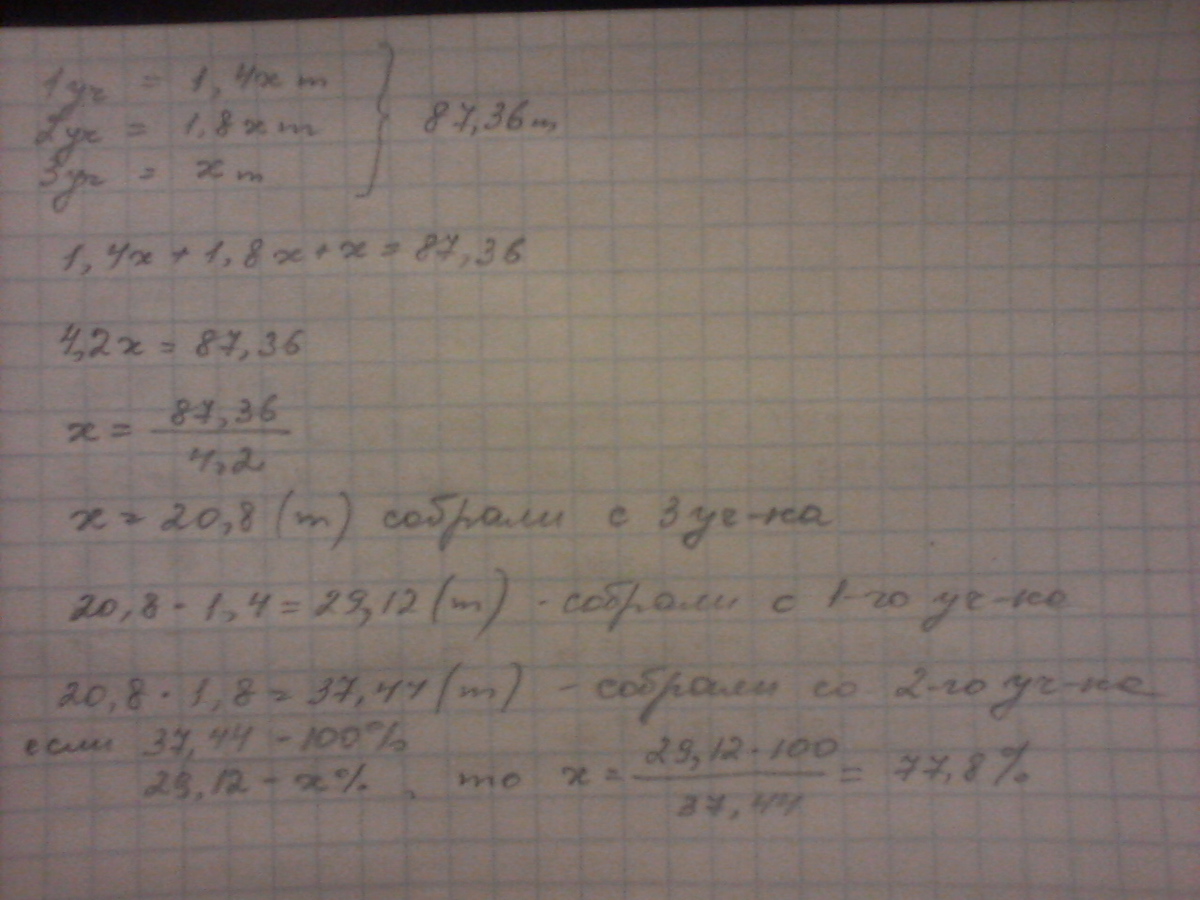 1 уч = 1,4x т
2 уч = 1,8x т } 87,36 т
3 уч = x т
1,4x + 1,8x + x = 87,36
4,2x = 87,36
x = 87,36 / 4,2
x = 20,8 (т) собрали с 3 уч-ка
20,8 · 1,4 = 29,12 (т) - собрали с 1-го уч-ка
20,8 · 1,8 = 37,44 (т) - собрали со 2-го уч-ка
если 37,44 - 100%
29,12 - x%, то x = 29,12 · 100 / 37,44 = 77,8%